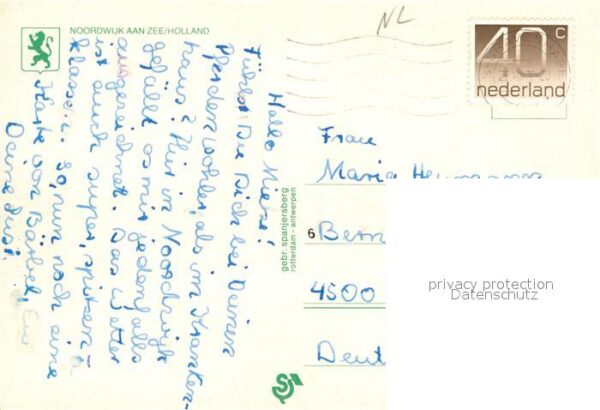 NOORDWIJK AAN ZEE/HOLLAND
NL
40 c
nederland
Hallo Miezi!
Fühlst Du Dich bei Deinen
Pferden wohler, als im Kranken-
haus? Hier in Noordwijk
gefällt es mir jedenfalls
ausgezeichnet. Das Wetter
ist auch super, spitzen-
klasse. So, nun noch eine
Karte von Bärbel,
Deine Susi
gebr. spanjersberg
rotterdam - antwerpen
Frau
Maria
6
Bern
4500
Deut
privacy protection
Datenschutz